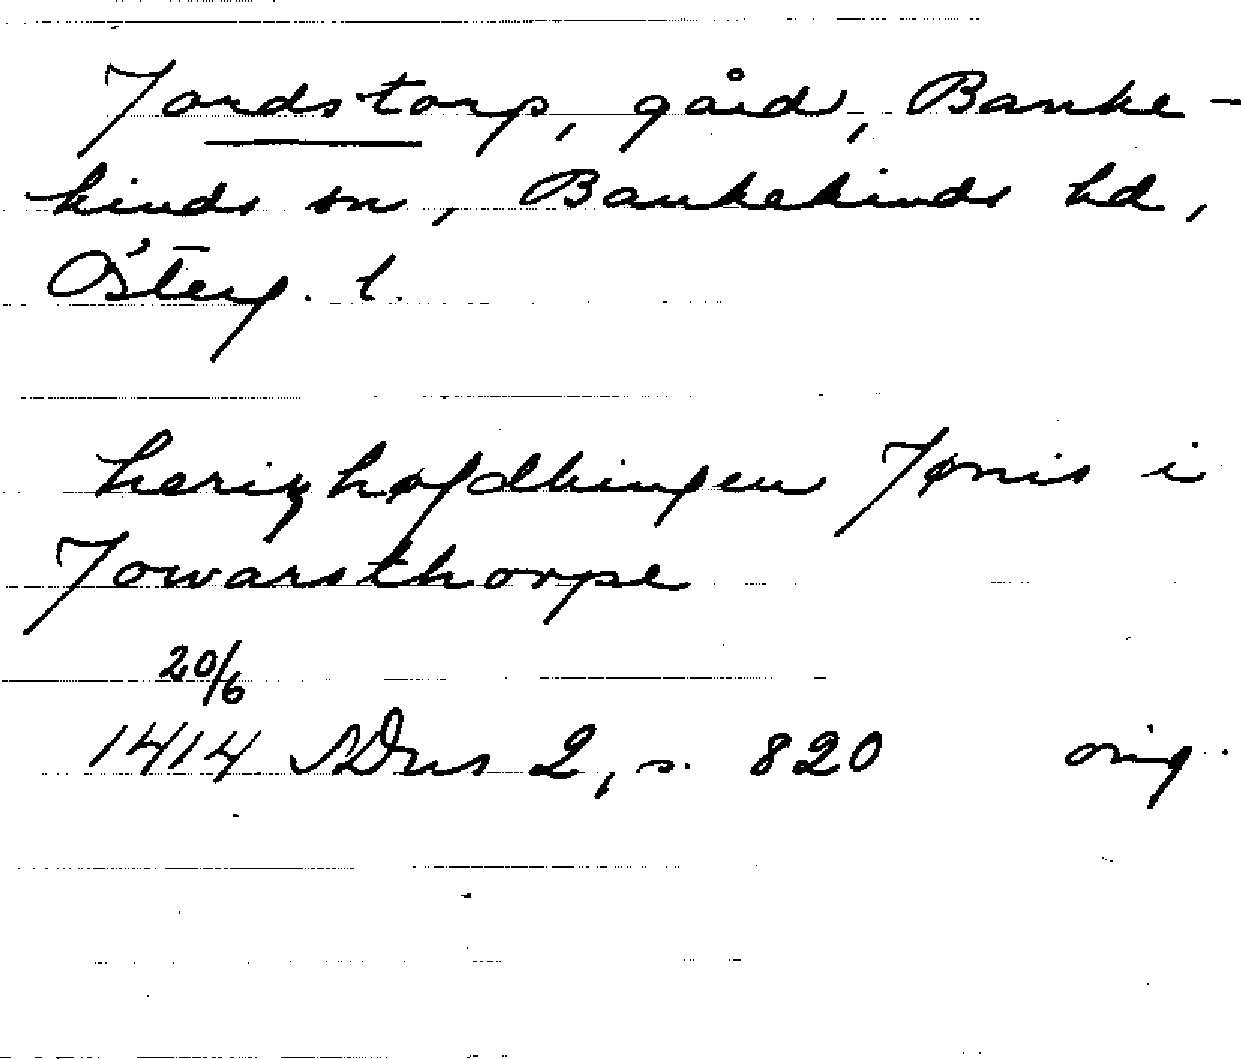 Jordstorp, gård, Banke-
kinds sn, Bankekinds hd,
Österg. l.
herizhøfdhingen Jønis i
Jowarsthorpe
20/6
1414 SDns 2, s. 820 orig.